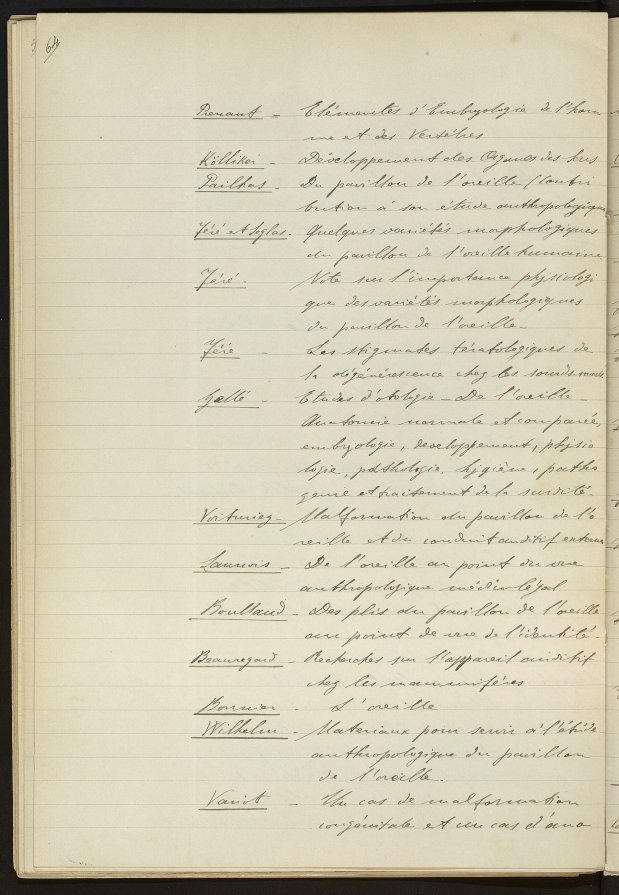 64
Prenant - Eléments d'Embryologie de l'hom
me et des Vertébrés
Kölliker - Développement des Organes des Sens
Pailhas - Du pavillon de l'oreille (Contri
bution à son étude anthropologique
Féré et Séglas - Quelques variétés morphologiques
du pavillon de l'oreille humaine
Féré - Note sur l'importance physiologi
que des variétés morphologiques
du pavillon de l'oreille -
Féré - Les stigmates tératologiques de
la dégénérescence chez les sourds-muets
Gellé - Etudes d'otologie - De l'oreille -
Anatomie normale et comparée,
embryologie, developpement, physio
logie, pathologie, hygiène, patho
genie et traitement de la surdité -
Voituriez - Malformation du pavillon de l'o
reille et du conduit auditif externe
Lannois - De l'oreille au point de vue
anthropologique médico légal
Boulland - Des plis du pavillon de l'oreille
au point de vue de l'identité -
Beauregard - Recherches sur l'appareil auditif
chez les mammifères
Bonnier - L'oreille
Wilhelm - Materiaux pour servir à l'étude
anthropologique du pavillon
de l'oreille.
Variot - Un cas de malformation
congénitale et un cas d'ano